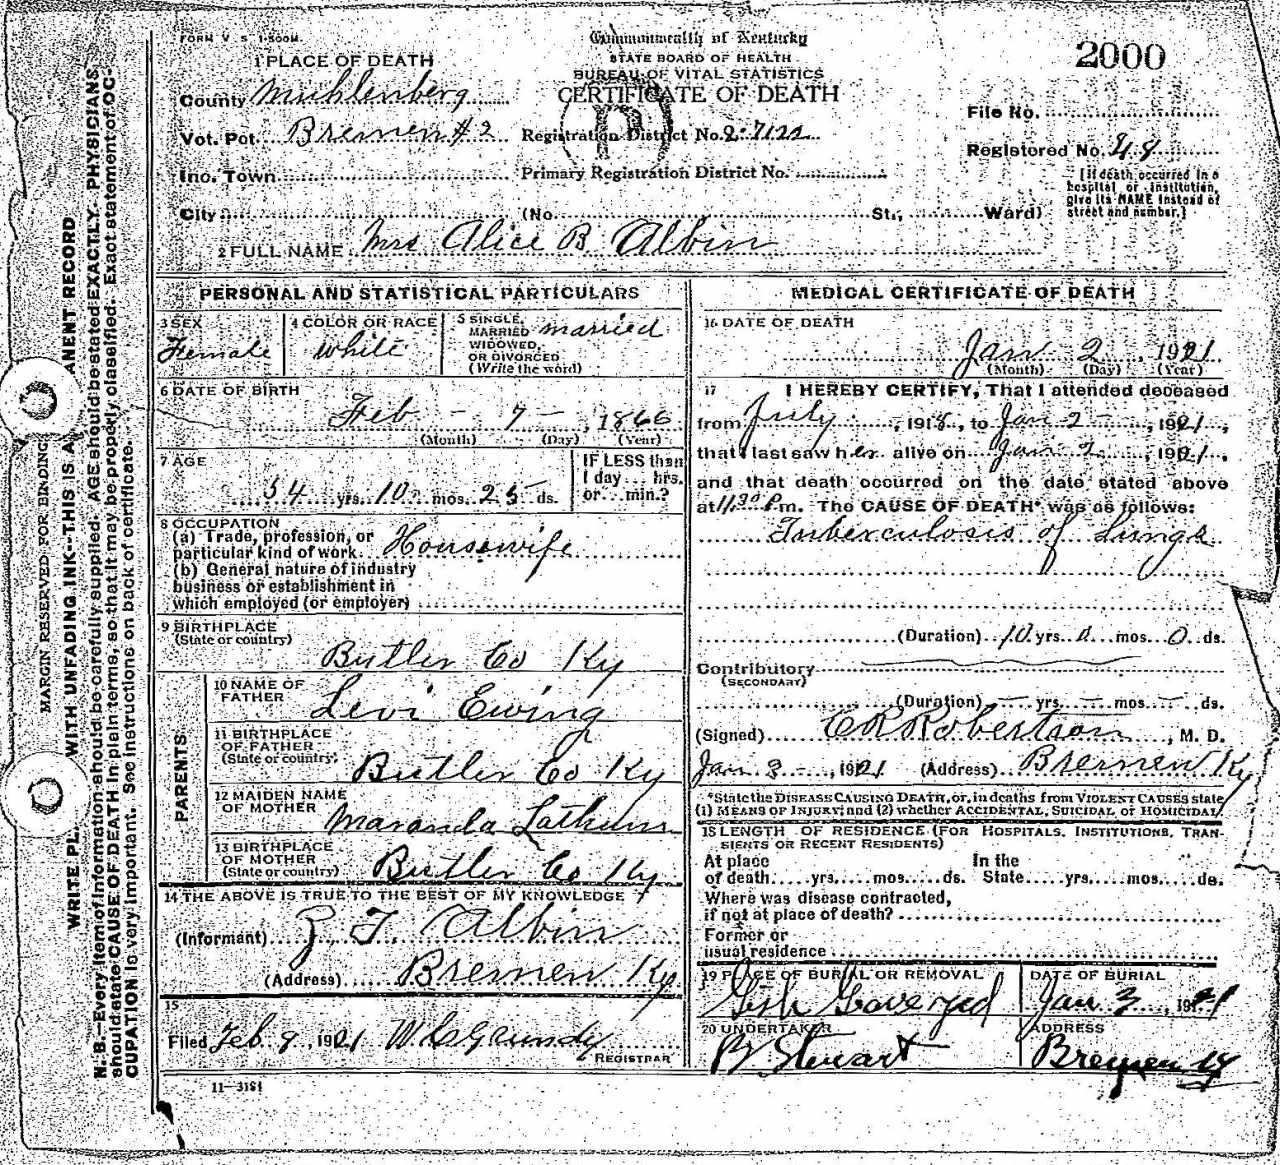 FORM V. S. 1-500M.
Commonwealth of Kentucky
STATE BOARD OF HEALTH
BUREAU OF VITAL STATISTICS
CERTIFICATE OF DEATH
2000
1 PLACE OF DEATH
County Muhlenberg
Vot. Pct. Bremen #2 Registration District No. 2-7122
File No.
Registered No. 48
Inc. Town Primary Registration District No.
City (No. St., Ward)
[If death occurred in a
hospital or institution,
give its NAME instead of
street and number.]
2 FULL NAME Mrs Alice B Albin
PERSONAL AND STATISTICAL PARTICULARS
3 SEX
Female
4 COLOR OR RACE
White
5 SINGLE,
MARRIED
WIDOWED,
OR DIVORCED
(Write the word)
married
6 DATE OF BIRTH
Feb - 7 - , 1866
(Month) (Day) (Year)
7 AGE
54 yrs. 10 mos. 25 ds.
IF LESS than
1 day ... hrs.
or ... min.?
8 OCCUPATION
(a) Trade, profession, or
particular kind of work Housewife
(b) General nature of industry
business or establishment in
which employed (or employer)
9 BIRTHPLACE
(State or country)
Butler Co Ky
PARENTS
10 NAME OF
FATHER
Levi Ewing
11 BIRTHPLACE
OF FATHER
(State or country)
Butler Co Ky
12 MAIDEN NAME
OF MOTHER
Maranda
13 BIRTHPLACE
OF MOTHER
(State or country)
Butler Co Ky
14 THE ABOVE IS TRUE TO THE BEST OF MY KNOWLEDGE
(Informant) Z. T. Albin
(Address) Bremen Ky
15
Filed Feb. 9, 1921 W C Grundy
REGISTRAR
11-3184
MEDICAL CERTIFICATE OF DEATH
16 DATE OF DEATH
Jan 2, 1921
(Month) (Day) (Year)
17 I HEREBY CERTIFY, That I attended deceased
from July, 1918, to Jan 2 -, 1921,
that I last saw her alive on Jan 2, 1921,
and that death occurred on the date stated above
at 11:30 P.m. The CAUSE OF DEATH* was as follows:
Tuberculosis of Lungs
(Duration) 10 yrs. 0 mos. 0 ds.
Contributory
(SECONDARY)
(Duration) — yrs. — mos. — ds.
(Signed) C R Robertson, M. D.
Jan 3 -, 1921 (Address) Bremen Ky
*State the DISEASE CAUSING DEATH, or, in deaths from VIOLENT CAUSES state
(1) MEANS OF INJURY; and (2) whether ACCIDENTAL, SUICIDAL or HOMICIDAL.
18 LENGTH OF RESIDENCE (FOR HOSPITALS, INSTITUTIONS, TRAN-
SIENTS OR RECENT RESIDENTS)
At place In the
of death yrs. mos. ds. State yrs. mos. ds.
Where was disease contracted,
if not at place of death?
Former or
usual residence
19 PLACE OF BURIAL OR REMOVAL
Gish Graveyard
DATE OF BURIAL
Jan 3, 1921
20 UNDERTAKER
B. Stewart
ADDRESS
Bremen Ky
MARGIN RESERVED FOR BINDING
WITH UNFADING INK--THIS IS A
ANENT RECORD
N. B.—Every item of information should be carefully supplied. AGE should be stated EXACTLY. PHYSICIANS
should state CAUSE OF DEATH in plain terms, so that it may be properly classified. Exact statement of OC-
CUPATION is very important. See instructions on back of certificate.